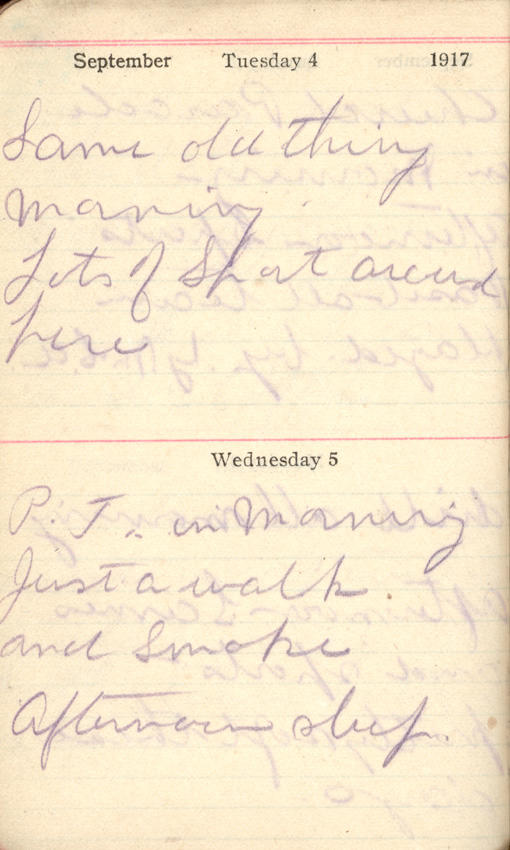 September Tuesday 4 1917
Same old thing
morning
Lots of Sport around
here
Wednesday 5
P. T. in morning
Just a walk
and Smoke
Afternoon sleep.